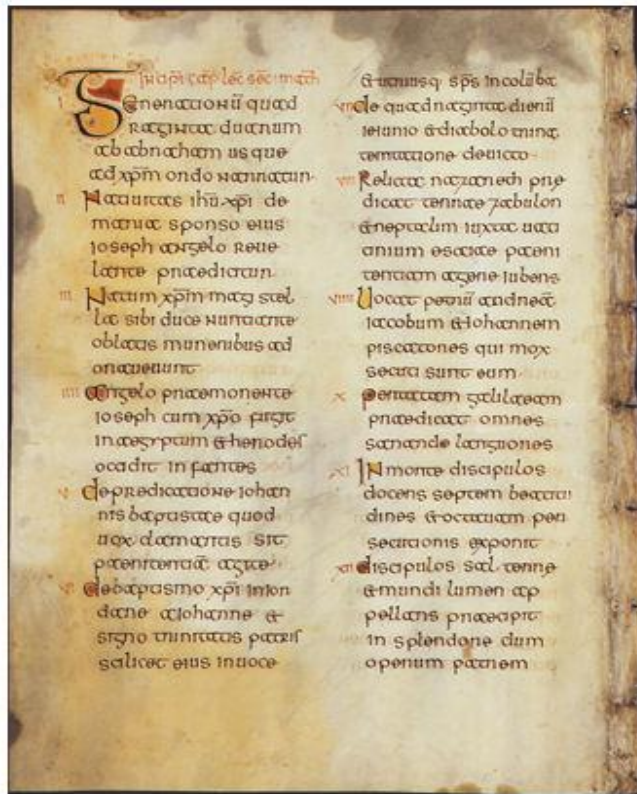 Incipi cap lec sec math
I Generationū quad
raginta duarum
ab abraham usque
ad xpm ordo narratur·
II Natiuitas ihū xpi de
maria sponso eius
ioseph angelo reue
lante praedictur
III Natum xpm magi stel
la sibi duce nuntiante
oblatis muneribus ad
orauerunt
IIII angelo praemonente
ioseph cum xpo fugit
in aegyptum & herodes
ocidit infantes
V de predicatione iohan
nis baptistae quod
uox clamantis sit
paenitentiā agite
VI de baptismo xpi in ior
dane a iohanne &
signo trinitatis patris
scilicet eius in uoce
& utriusq sps in columba
VII de quadraginta dierū
ieiunio & diabolo trina
temtatione deuicto·
VIII Relicta nazareth pre
dicat terrae zabulon
& neptalim iuxta uati
cinium esaiae paeni
tentiam agere iubens
VIIII Uocat petrū andreā
iacobum & iohannem
piscatores qui mox
secuti sunt eum·
X peragrans galilaeam
praedicat omnes
sanando languores
XI In monte discipulos
docens septem beatitu
dines & octauam per
secutionis exponit
XII discipulos sal terrae
& mundi lumen ap
pellans praecipit
in splendore eum
operum patrem